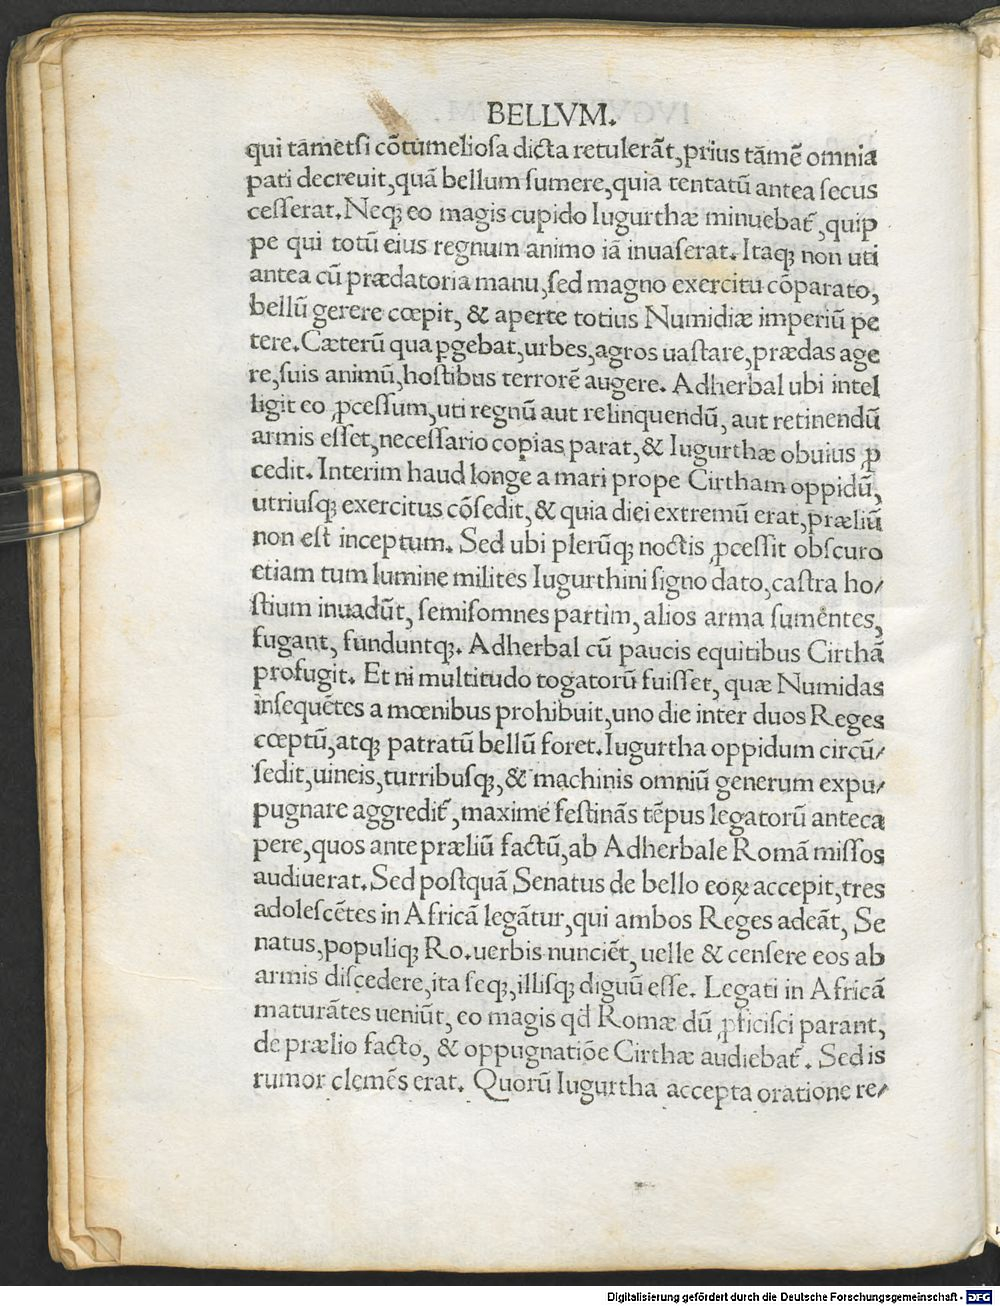 BELLVM.
qui tāmetsi cōtumeliosa dicta retulerāt, prius tāmē omnia
pati decreuit, quā bellum sumere, quia tentatū antea secus
cesserat. Neqꝫ eo magis cupido Iugurthæ minuebat̃, quip
pe qui totū eius regnum animo iā inuaserat. Itaqꝫ non uti
antea cū prædatoria manu, sed magno exercitu cōparato,
bellū gerere cœpit, & aperte totius Numidiæ imperiū pe
tere. Cæterū qua ꝑgebat, urbes, agros uastare, prædas age
re, suis animū, hostibus terrorē augere. Adherbal ubi intel
ligit eo ꝓcessum, uti regnū aut relinquendū, aut retinendū
armis esset, necessario copias parat, & Iugurthæ obuius ꝓ
cedit. Interim haud longe a mari prope Cirtham oppidū,
utriusqꝫ exercitus cōsedit, & quia diei extremū erat, præliū
non est inceptum. Sed ubi plerūqꝫ noctis ꝓcessit obscuro
etiam tum lumine milites Iugurthini signo dato, castra ho/
stium inuadūt, semisomnes partim, alios arma sumentes,
fugant, funduntqꝫ. Adherbal cū paucis equitibus Cirthā
profugit. Et ni multitudo togatorū fuisset, quæ Numidas
insequētes a mœnibus prohibuit, uno die inter duos Reges
cœptū, atqꝫ patratū bellū foret. Iugurtha oppidum circū/
sedit, uineis, turribusqꝫ, & machinis omniū generum expu/
pugnare aggredit̃, maxime festinās tēpus legatorū anteca
pere, quos ante præliū factū, ab Adherbale Romā missos
audiuerat. Sed postquā Senatus de bello eoꝝ accepit, tres
adolescētes in Africā legātur, qui ambos Reges adeāt, Se
natus, populiqꝫ Ro. uerbis nunciēt, uelle & censere eos ab
armis discedere, ita seqꝫ, illisqꝫ diguū esse. Legati in Africā
maturātes ueniūt, eo magis qd Romæ dū ꝓficisci parant,
de prælio facto, & oppugnatiōe Cirthæ audiebat̃. Sed is
rumor clemēs erat. Quorū Iugurtha accepta oratione re/
Digitalisierung gefördert durch die Deutsche Forschungsgemeinschaft - DFG